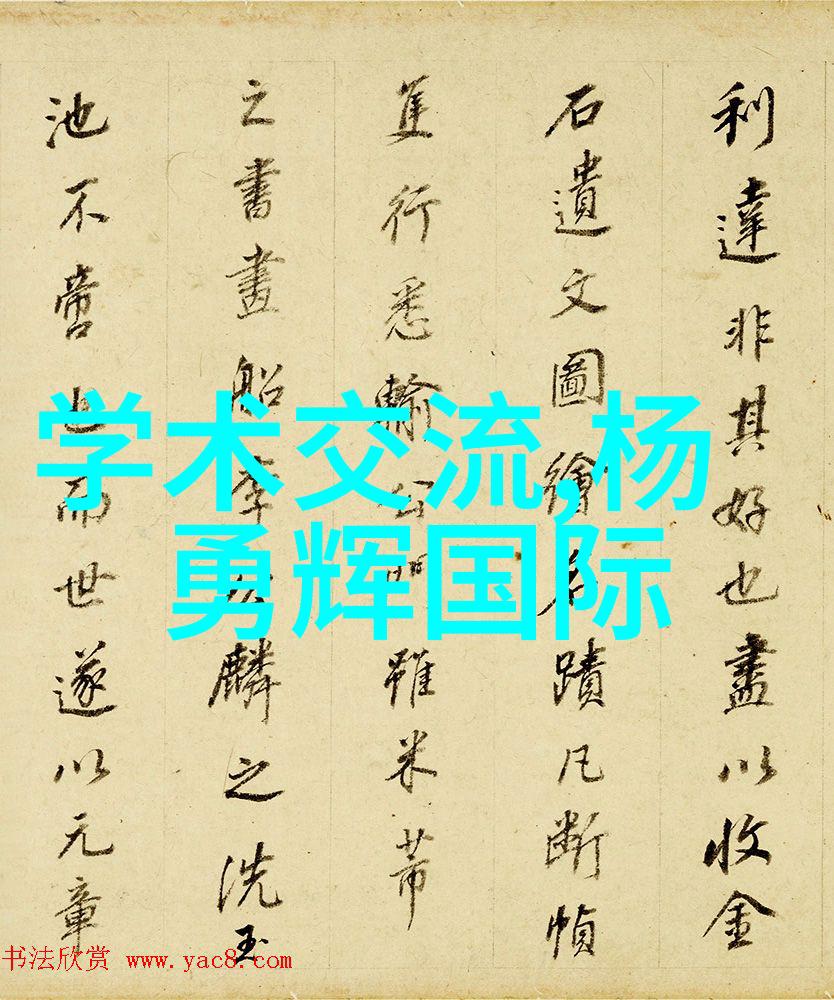 利達非其好也盡以收金
石遺文圖繪名蹟凡斷幀
隻行悉輸公門雖米芾
之書畫船李公麟之洗玉
池不啻也而世遂以元章
学术交流,杨
勇辉国际
书法欣赏 www.yac8.com